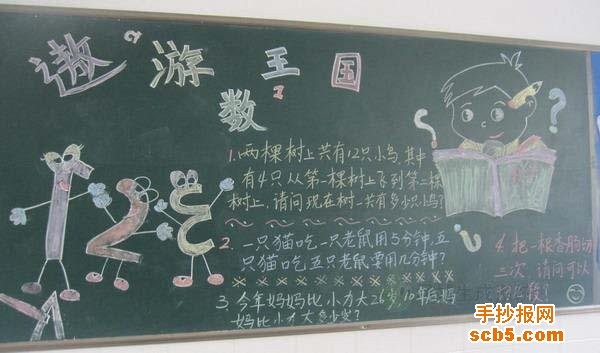 遨游数王国
1.两棵树上共有12只小鸟,其中
有4只从第一棵树上飞到第二棵
树上,请问现在树一共有多少只小鸟?
2.一只猫吃一只老鼠用5分钟,五
只猫吃五只老鼠要用几分钟?
3 今年妈妈比小力大26岁,10年后,妈
妈比小力大多少岁?
4.把一根香肠切
三次,请问可以
切几段?
手抄报网
scb5.com